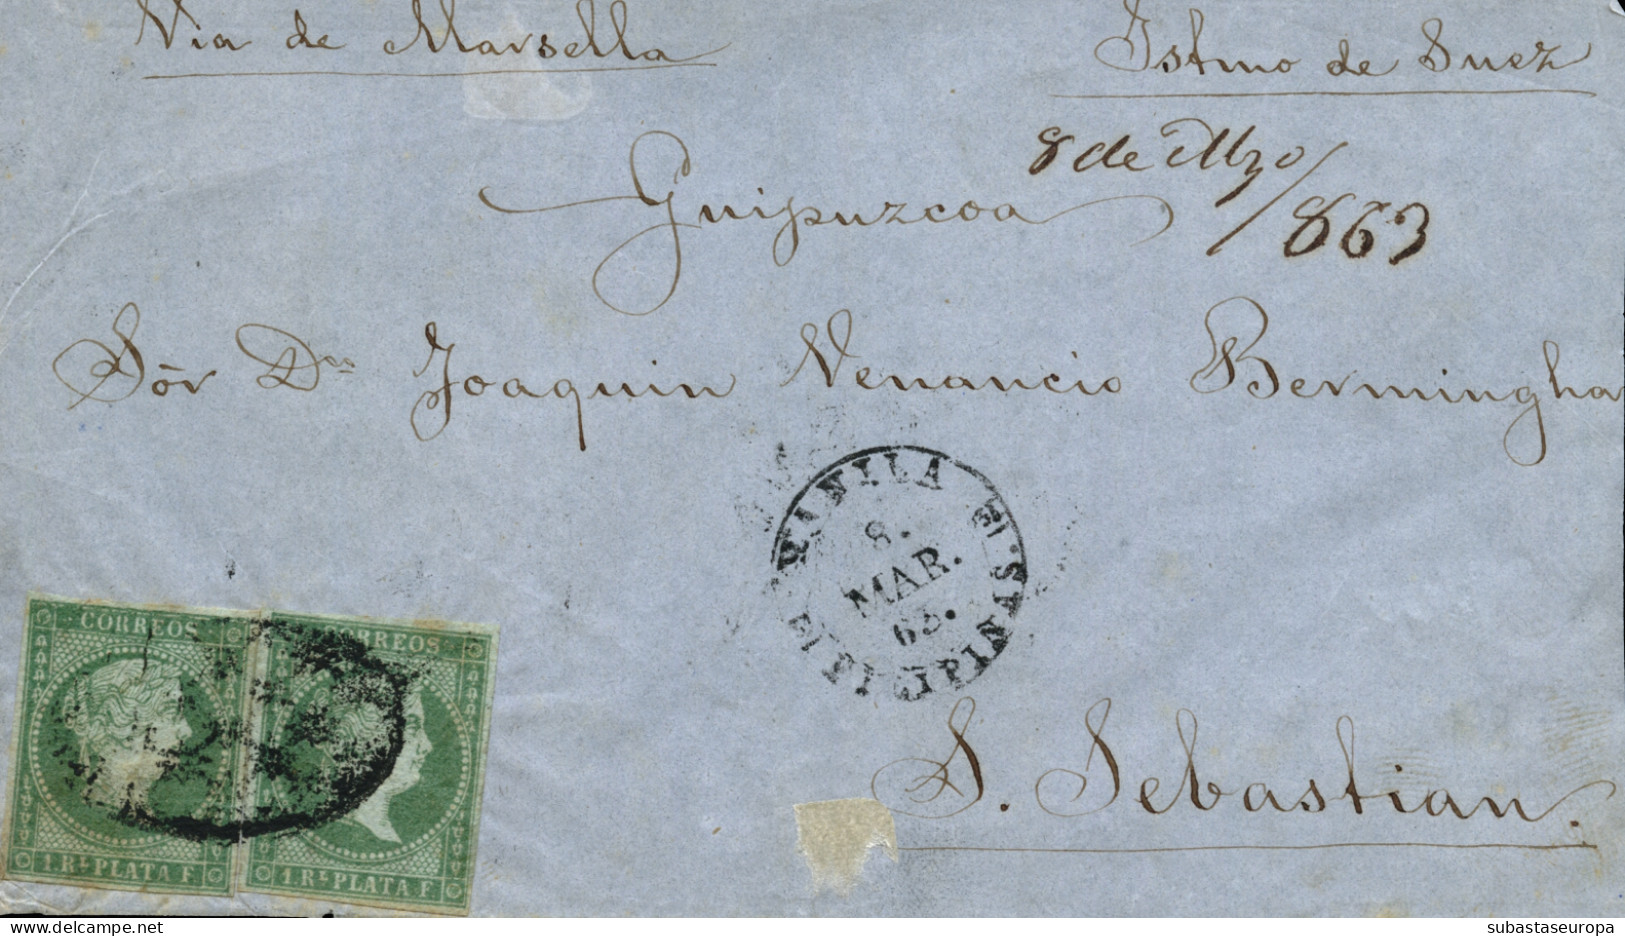 Via de Marsella
Istmo de Suez
8 de Mzo/863
Guipuzcoa
Sōr Dn Joaquin Venancio Bermingha
MANILA
8.
MAR.
63.
S. Sebastian.
CORREOS
1. Rl. PLATA F.
CORREOS
1 RL PLATA F.
subastaseuropa